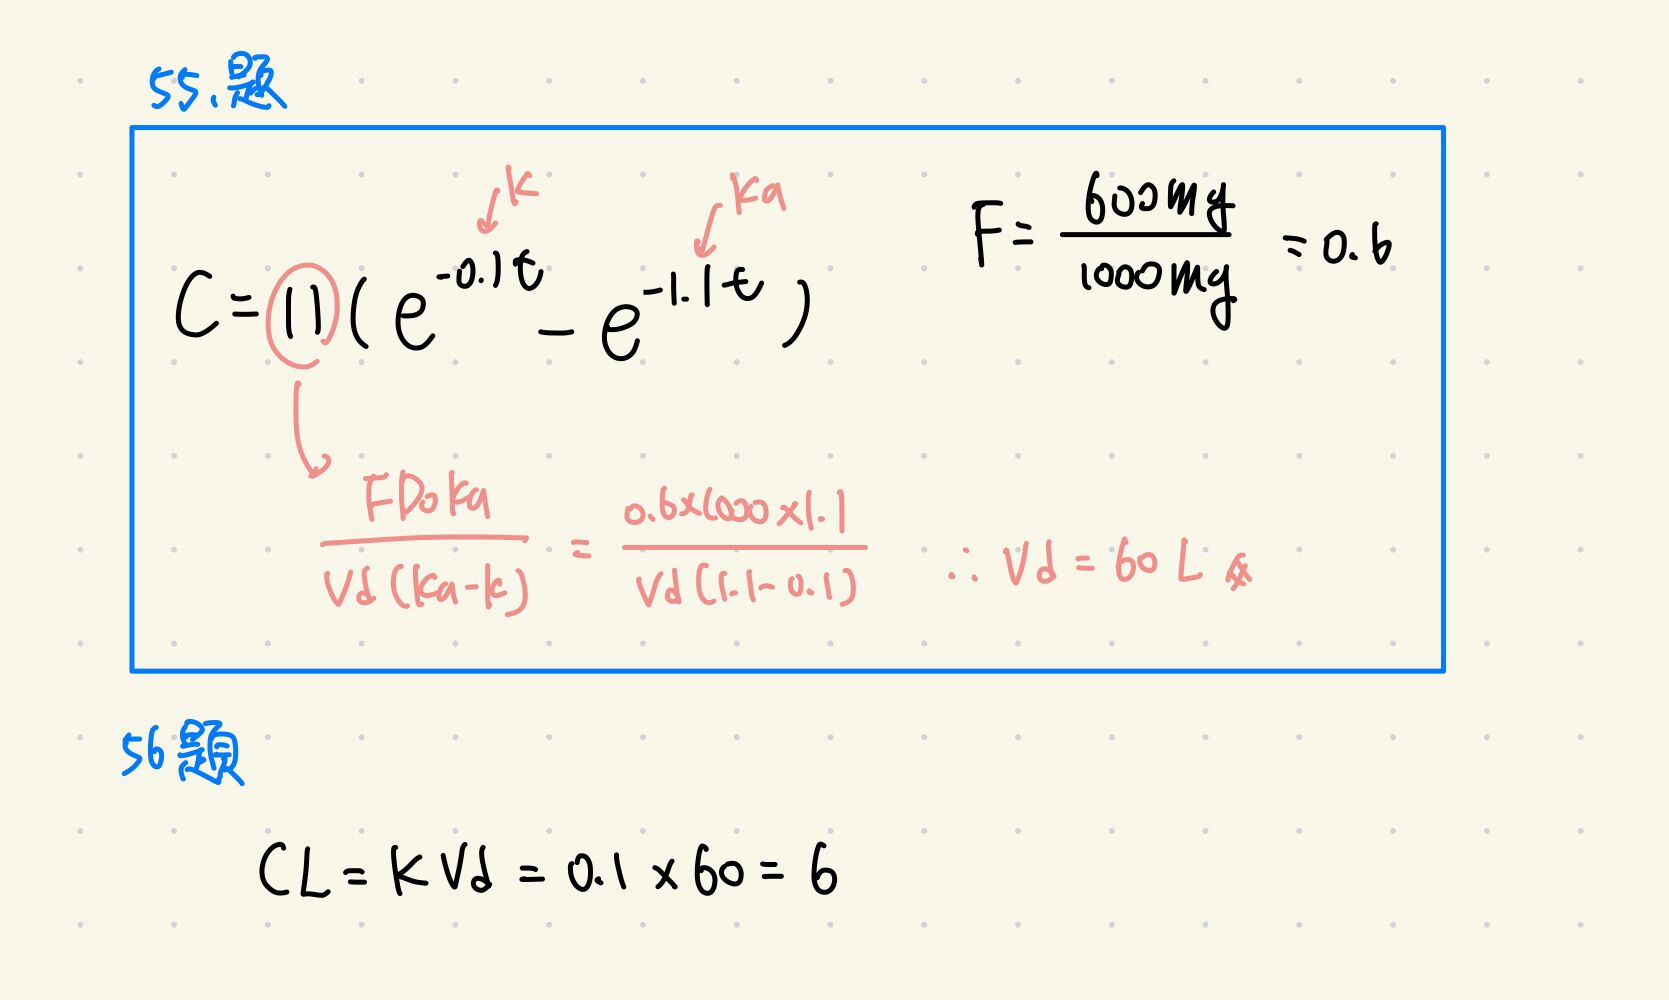 55.題
K
Ka
C=11(e^-0.1t - e^-1.1t)
F= 600mg / 1000mg = 0.6
FD0Ka / Vd(Ka-k) = 0.6x1000x1.1 / Vd(1.1-0.1) ∴ Vd = 60 L
56題
CL = KVd = 0.1 x 60 = 6